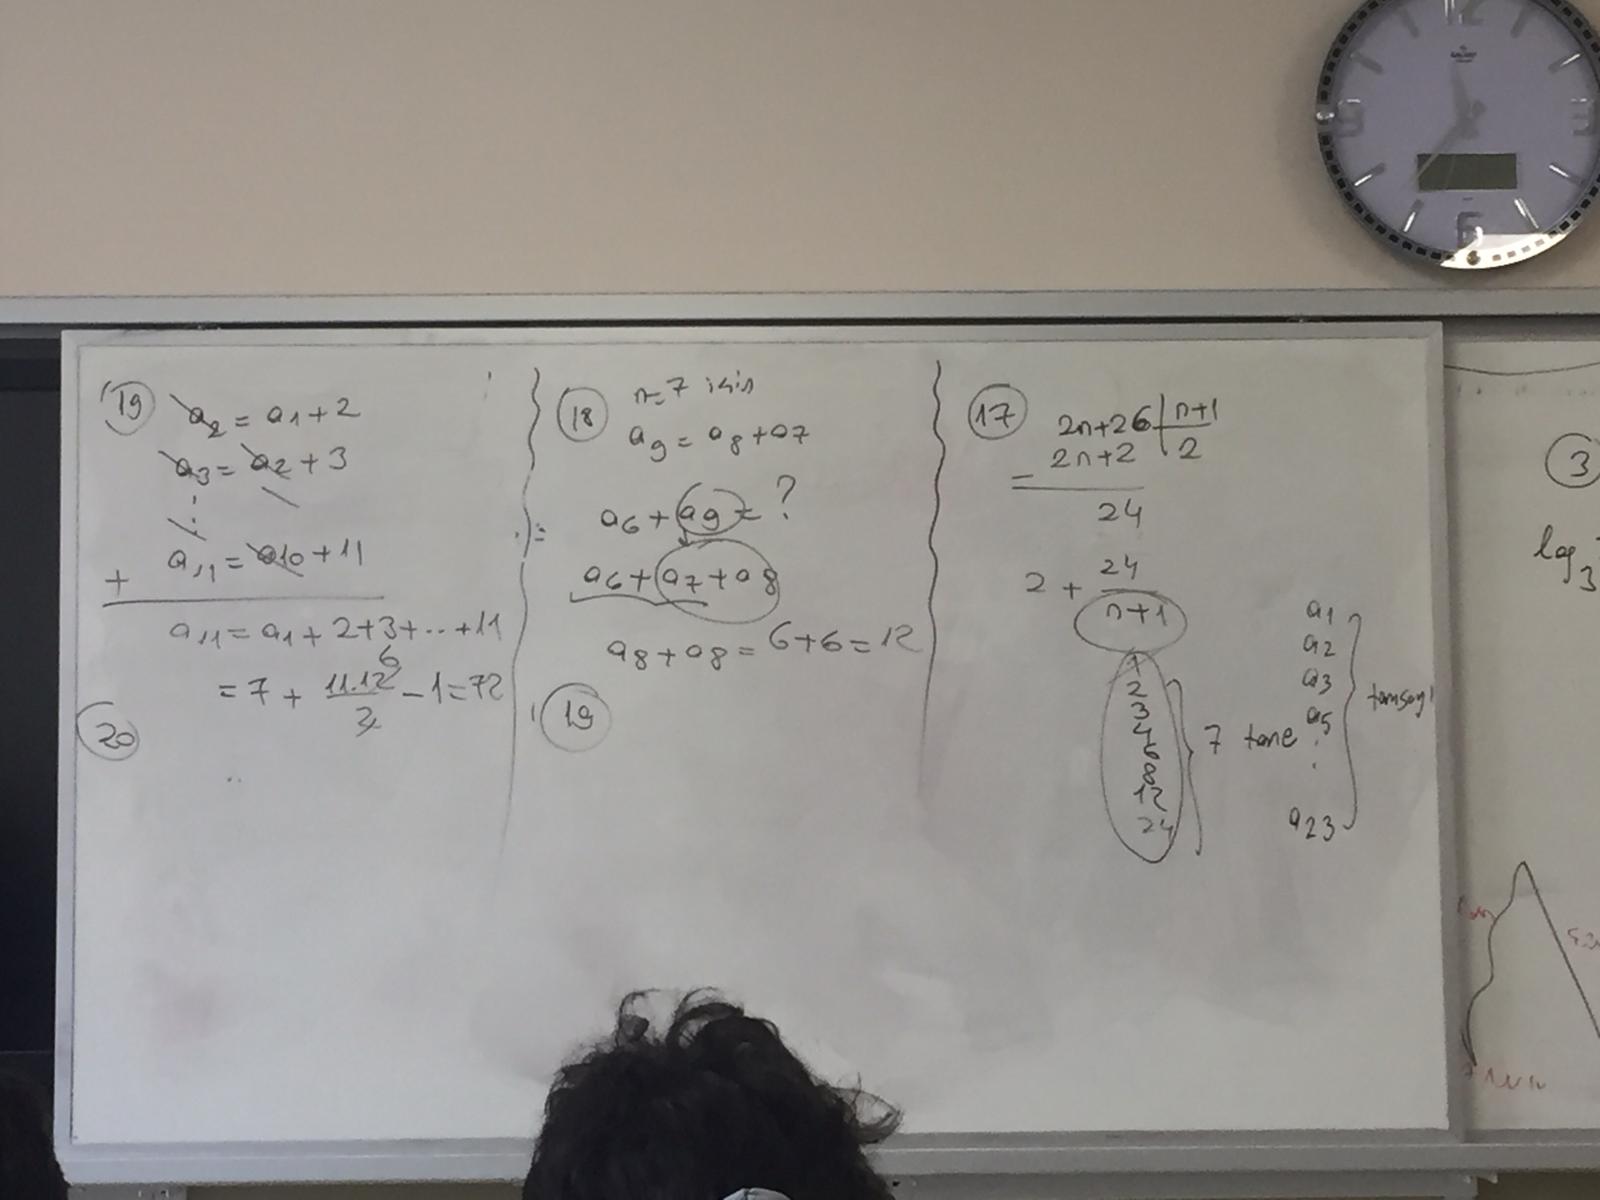 19
a2 = a1 + 2
a3 = a2 + 3
⋮
+ a11 = a10 + 11
a11 = a1 + 2 + 3 + ... + 11
6
= 7 + 11.12/2 - 1 = 72
20
18
n = 7 için
a9 = a8 + a7
a6 + a9 = ?
a6 + a7 + a8
a8 + a8 = 6 + 6 = 12
19
17
2n+26 | n+1
- 2n+2 | 2
24
2 + 24/(n+1)
1
2
3
4
6
8
12
24
7 tane
a1
a2
a3
a5
⋮
a23
tamsayı
3
log3
12
3
6
9